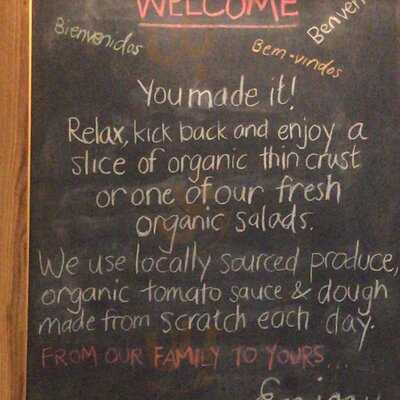 WELCOME
Bienvenidos
Bem-vindos
You made it!
Relax, kick back and enjoy a
slice of organic thin crust
or one of our fresh
organic salads.
We use locally sourced produce,
organic tomato sauce & dough
made from scratch each day.
FROM OUR FAMILY TO YOURS...